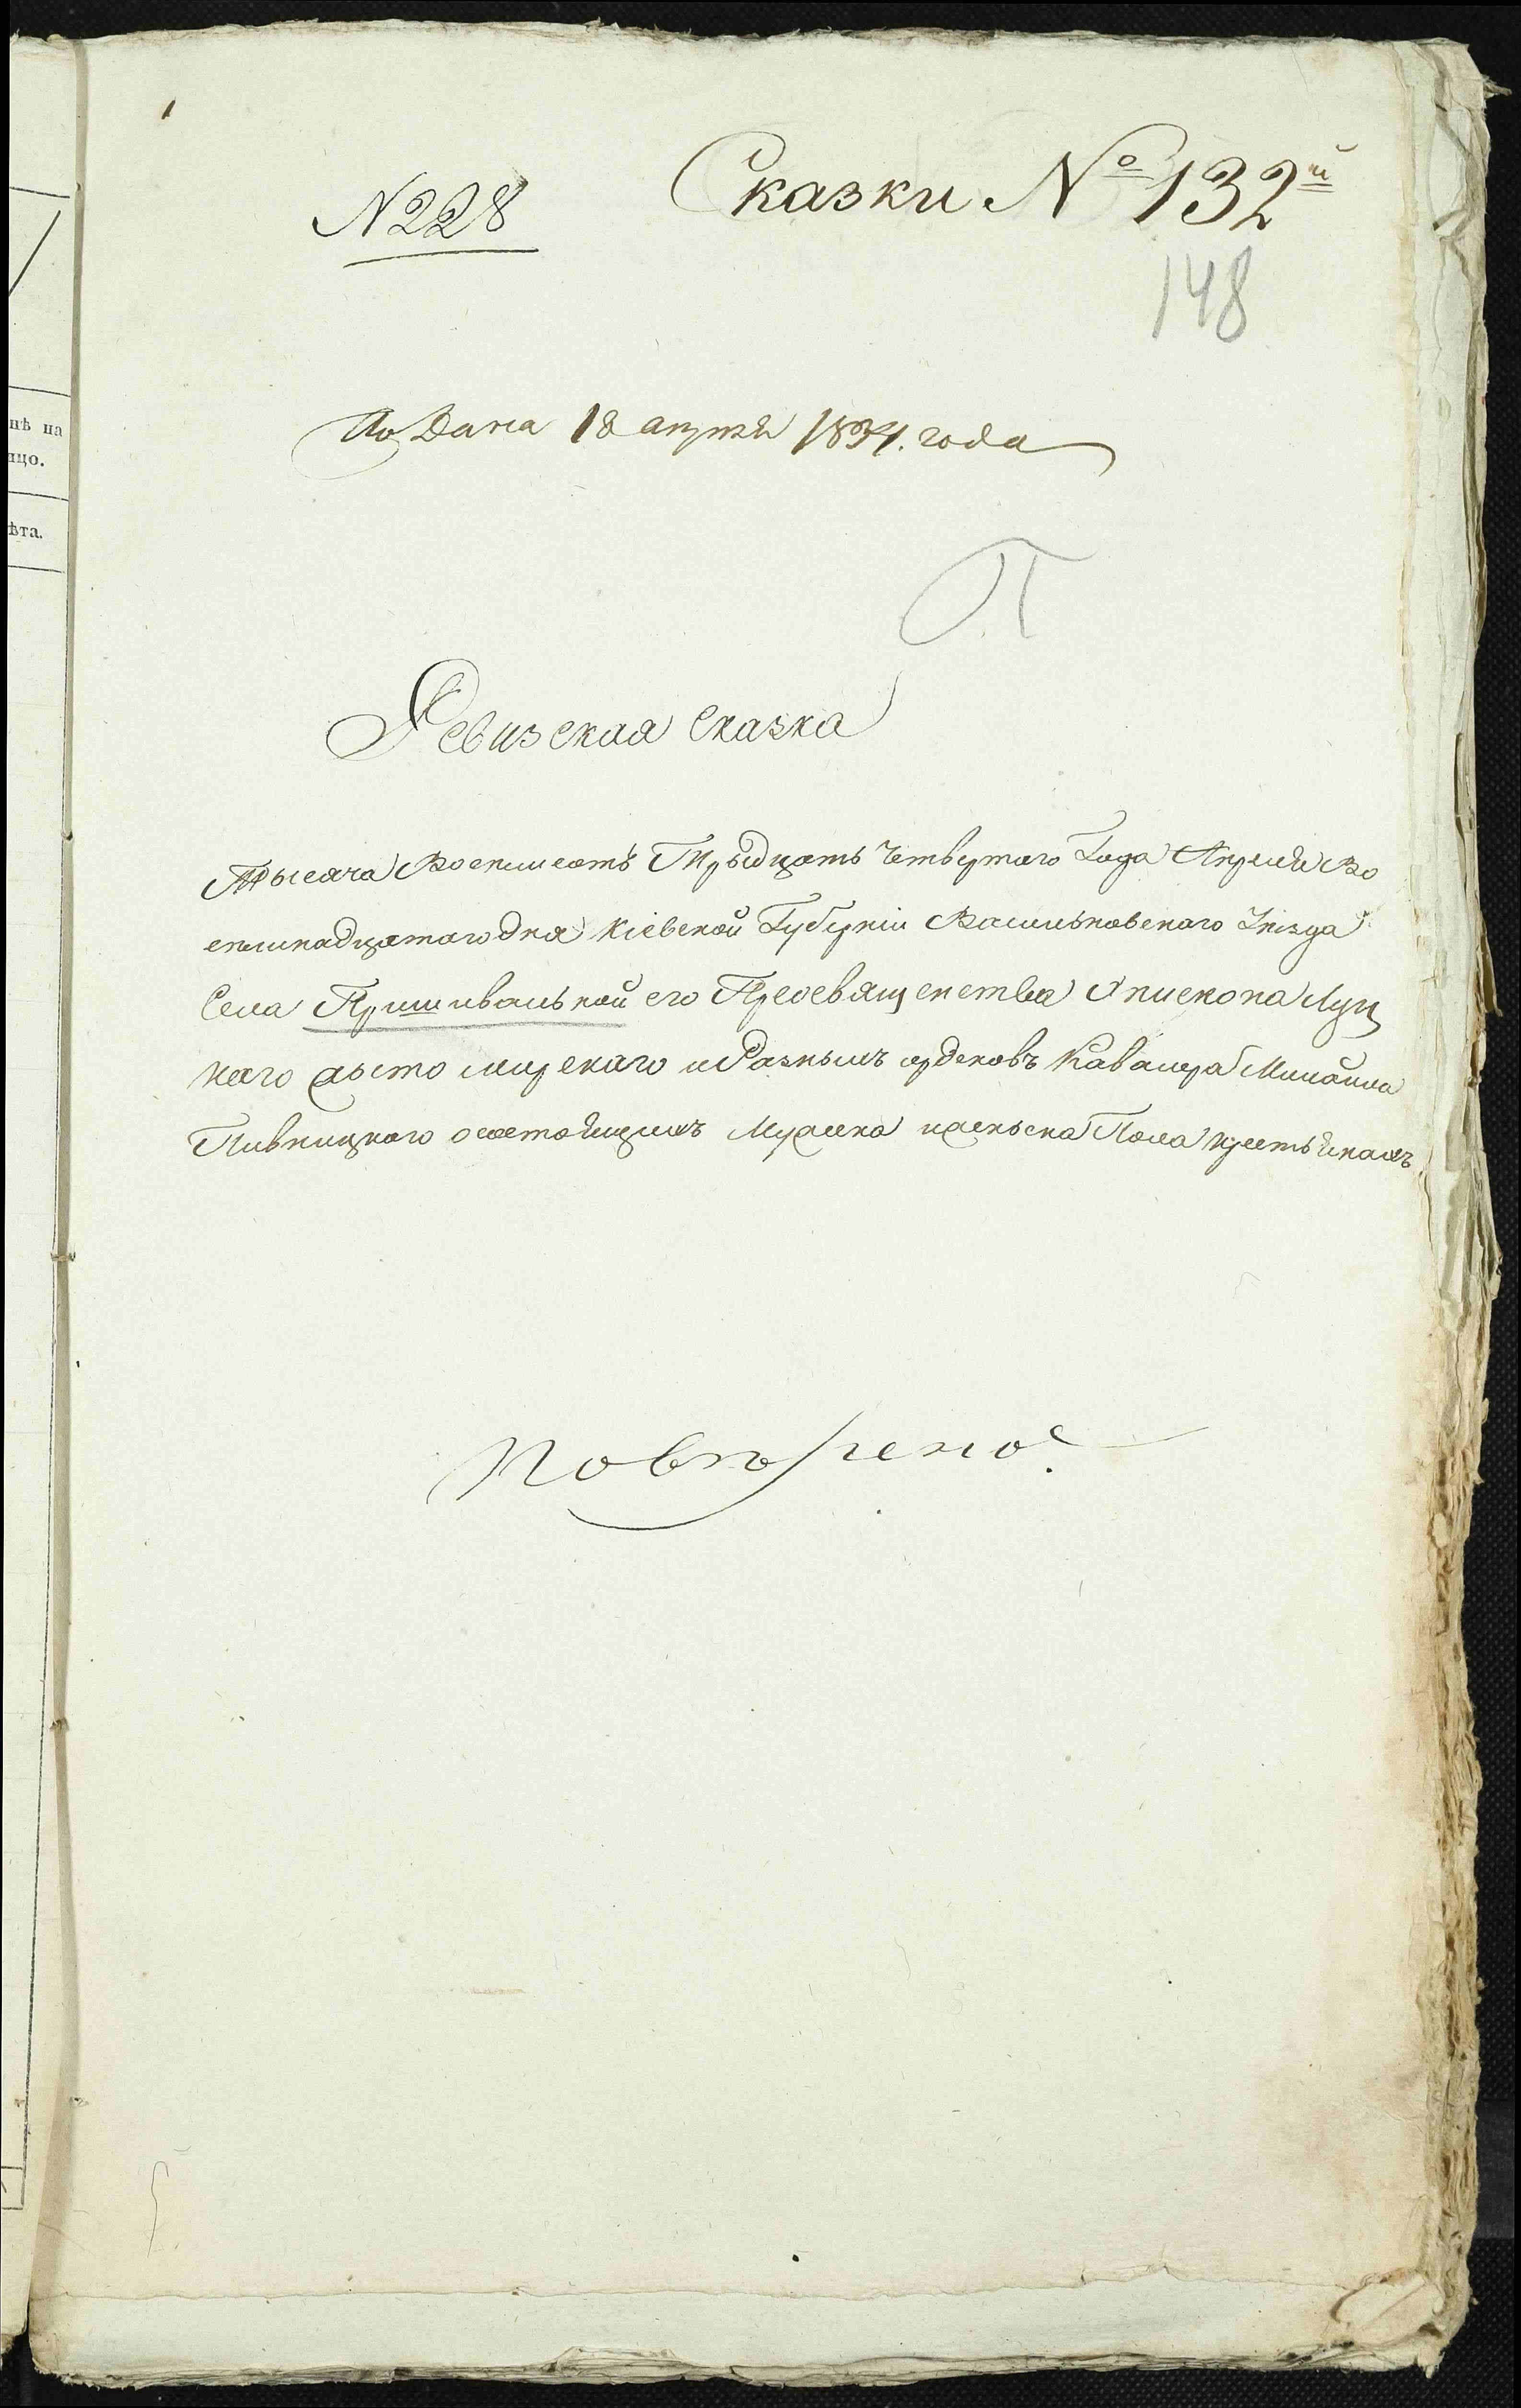 Сказки № 132й
N 228
148
Подана 18 апреля 1834. года
нѣ на
ицо.
ѣта.
П
Ревизская сказка
Тысяча Восемьсотъ Трыдцать Четвертаго Года Апреля Во
семнадцатого дня Кіевской Губерніи Васильковского Уѣзда
Села Пришивальной его Преосвященства Епископа Луц
каго Житомирскаго и Разныхъ орденовъ Кавалера Михаила
Пивницкого о состоящихъ Мужска и женска Пола крестьянахъ
Повѣрено